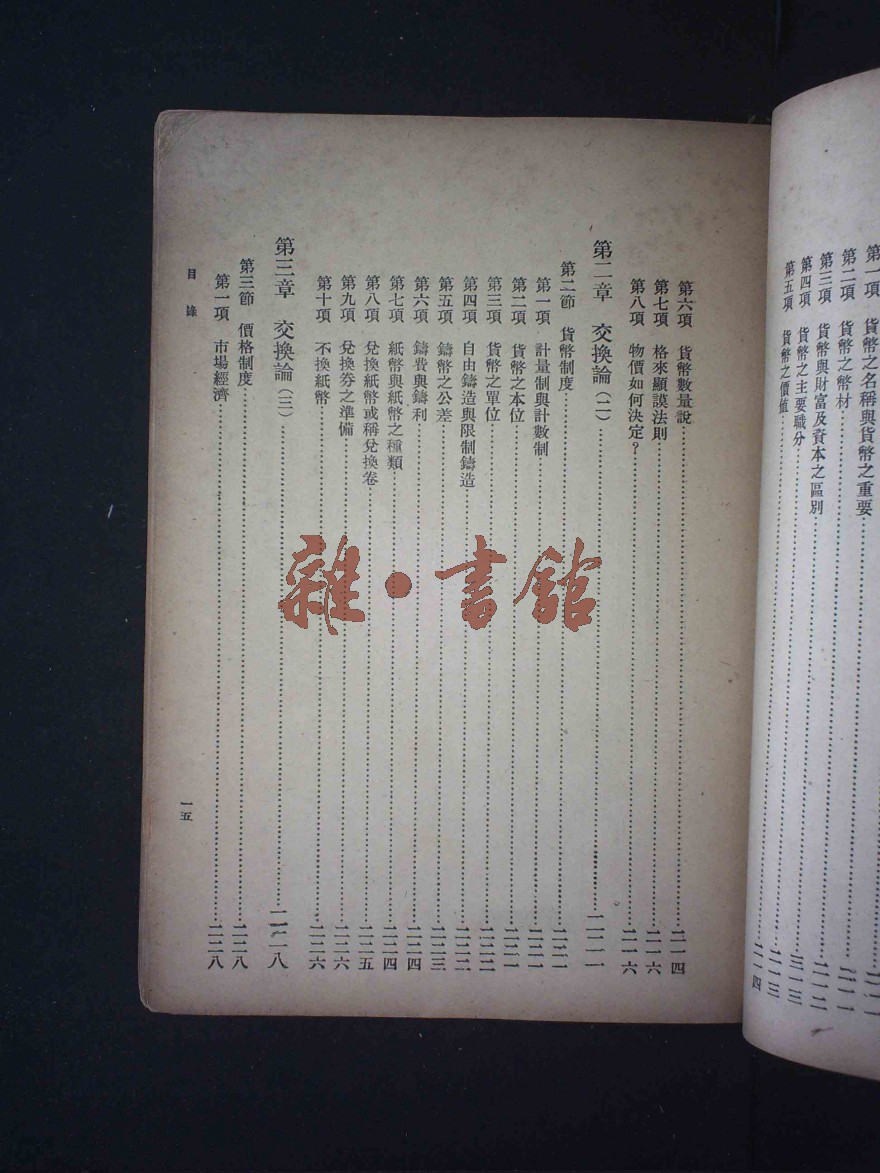 第一項 貨幣之名稱與貨幣之重要
第二項 貨幣之幣材
第三項 貨幣與財富及資本之區別
第四項 貨幣之主要職分
第五項 貨幣之價值
第六項 貨幣數量說 二一四
第七項 格來顯謨法則 二一六
第八項 物價如何決定? 二一六
第二章 交換論(二)
第二節 貨幣制度 二二一
第一項 計量制與計數制 二二一
第二項 貨幣之本位 二二一
第三項 貨幣之單位 二二二
第四項 自由鑄造與限制鑄造 二二二
第五項 鑄幣之公差 二二三
第六項 鑄費與鑄利 二二四
第七項 紙幣與紙幣之種類 二二四
第八項 兌換紙幣或稱兌換卷 二二五
第九項 兌換券之準備 二二六
第十項 不換紙幣 二二六
第三章 交換論(三)
第三節 價格制度 二二八
第一項 市場經濟 二二八
目錄
一五
雜·書館